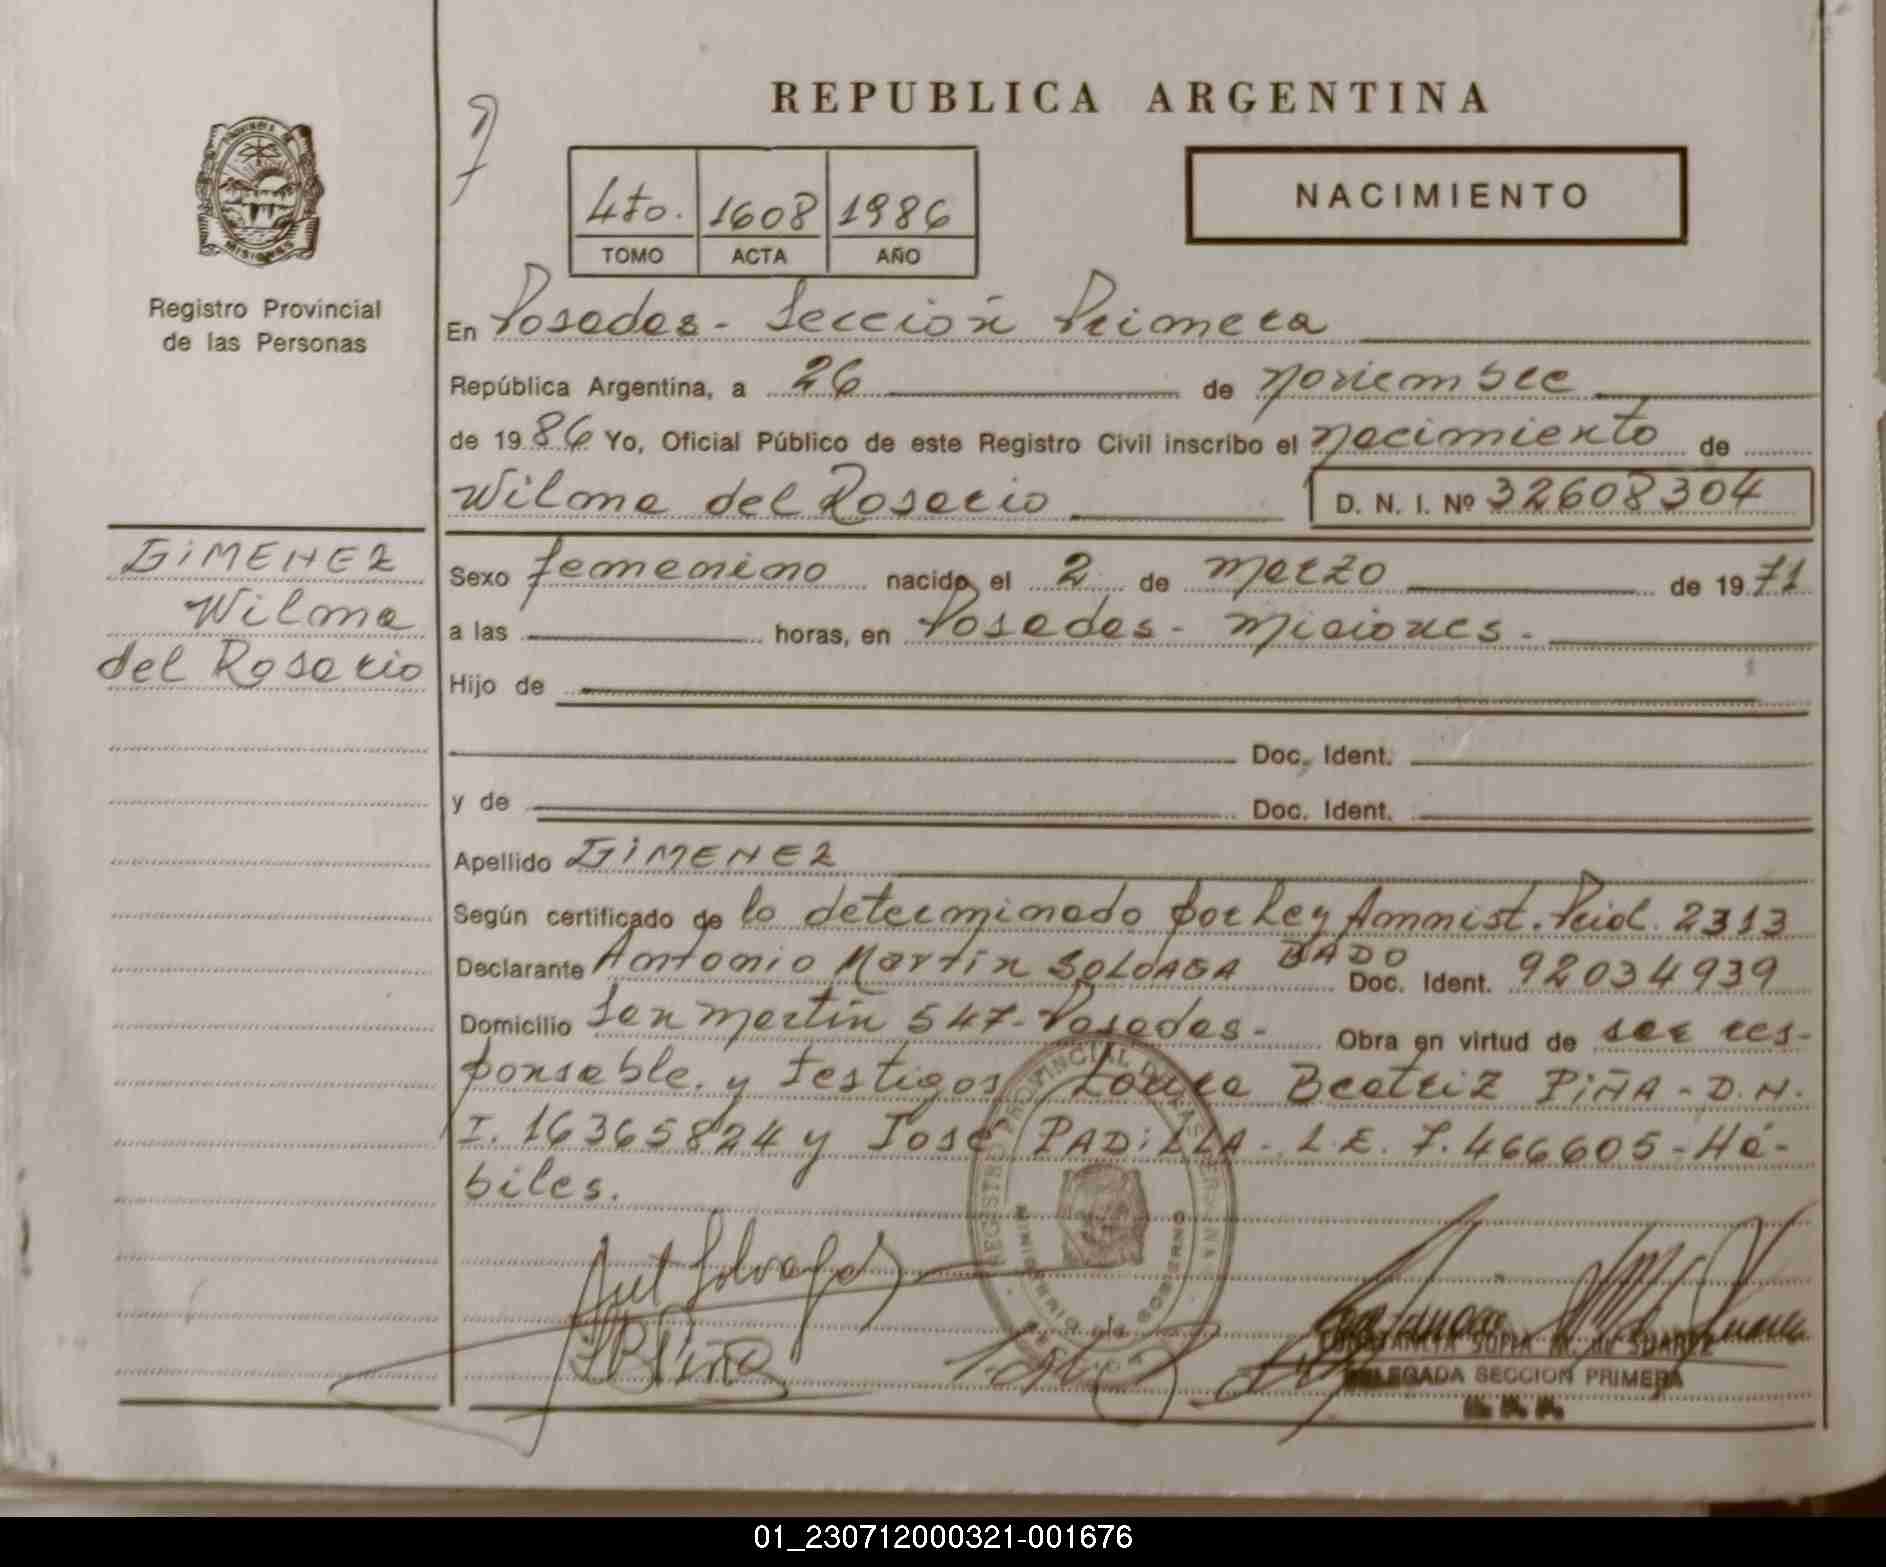 REPUBLICA ARGENTINA
NACIMIENTO
4to. 1608 1986
TOMO ACTA AÑO
MISIONES
Registro Provincial
de las Personas
En Posadas - Sección Primera
República Argentina, a 26 de noviembre
de 1986 Yo, Oficial Público de este Registro Civil inscribo el nacimiento de
Wilma del Rosario D. N. I. Nº 32608304
GIMENEZ
Wilma
del Rosario
Sexo femenino nacida el 2 de marzo de 1971
a las horas, en Posadas - Misiones -
Hijo de
Doc. Ident.
y de Doc. Ident.
Apellido GIMENEZ
Según certificado de lo determinado por Ley Amnist. Prid. 2313
Declarante Antonio Martín SOLOAGA BADO Doc. Ident. 92034939
Domicilio San Martín 547 - Posadas - Obra en virtud de ser res-
ponsable. y Testigos Laura Beatriz PIÑA - D.N.
I. 16365824 y José PADILLA - L.E. 7.466605 - Há-
biles.
REGISTRO PROVINCIAL DE LAS PERSONAS
MINISTERIO DE GOBIERNO
CONSTANCIA SOFIA M. de SUAREZ
DELEGADA SECCION PRIMERA
01_230712000321-001676